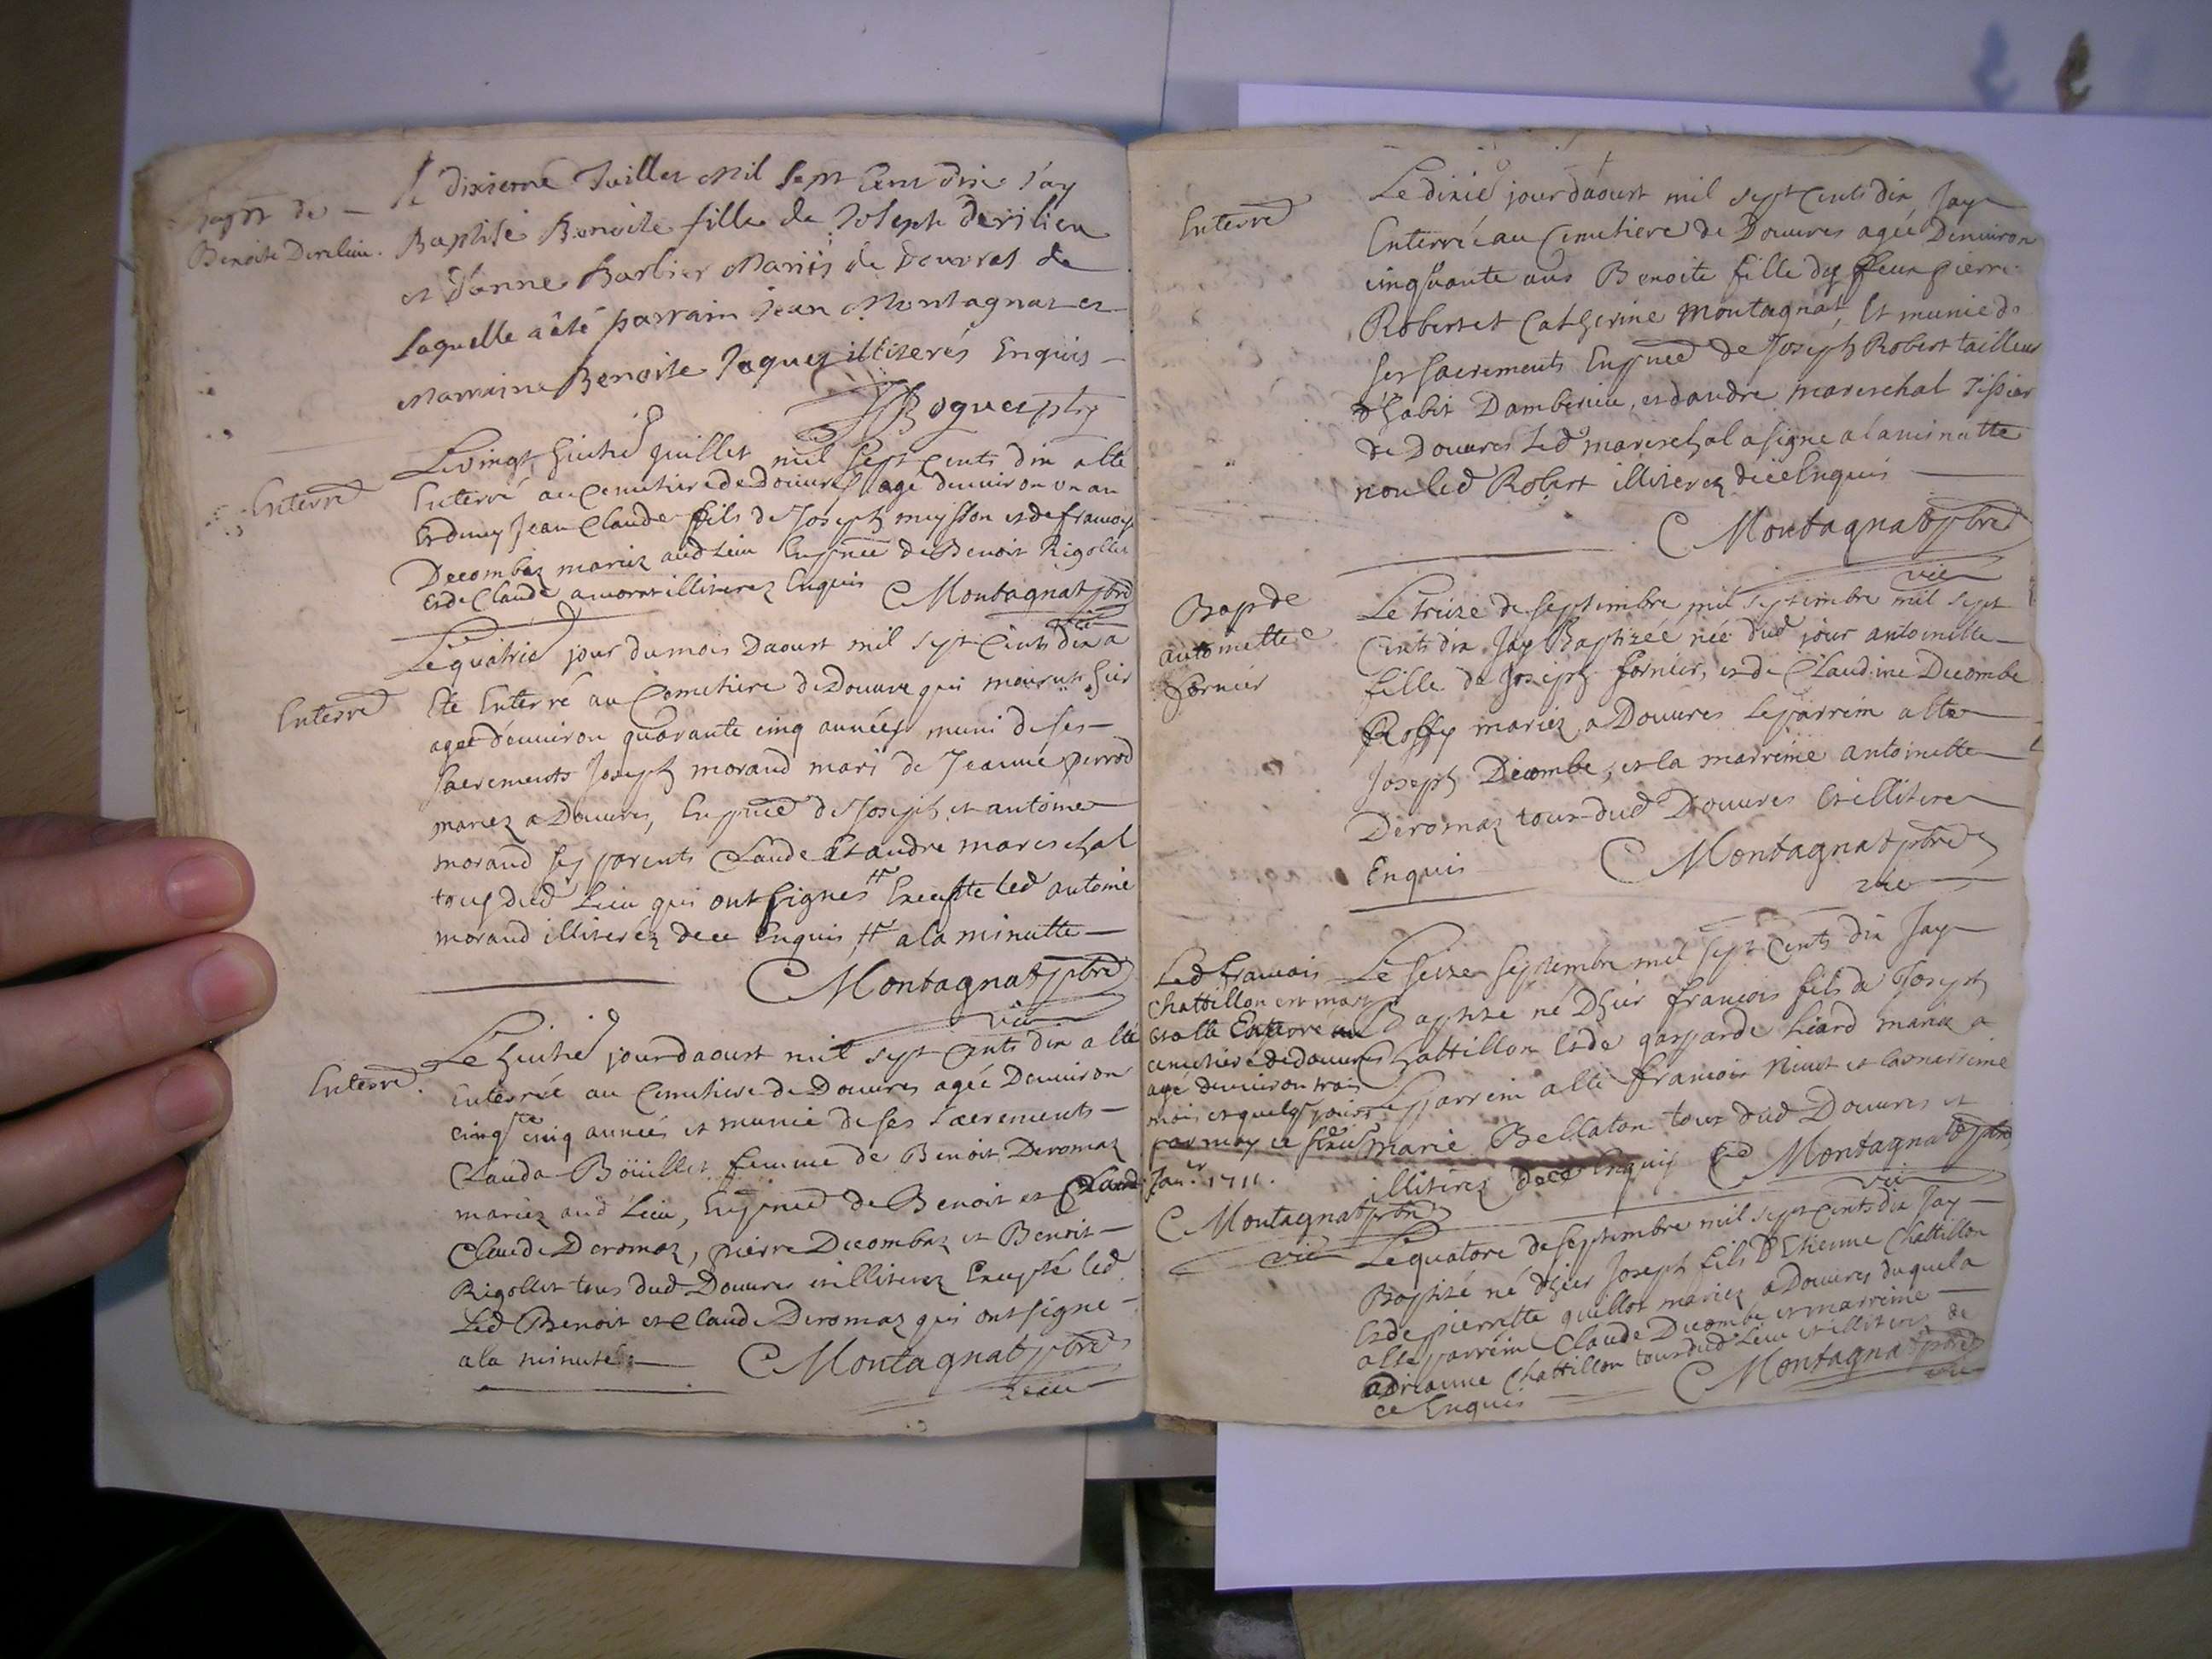 Bapt de
Benoite Derilieu.
le dixieme Juillet Mil sept cent dix J'ay
Baptisé Benoite fille de Joseph derilieu
et d'anne Barbier Mariés de douvres de
laquelle a êté parrain Jean Montagnat et
Marraine Benoite Jaquet illiterés Enquis
Enterré
Le vingt huitie juillet mil sept cents dix a été
Enterré au Cemetiere de Douvres agé denviron un an
Jean Claude fils de Joseph muysson et de francoise
Decombaz mariez aud Lieu En pnce de Benoit Rigollet
et de Claude morat illiterez Enquis C Montagnat pbre
Enterré
Le quatrie jour du mois Daoust mil sept cents dix a
Eté Enterré au Cemetiere de Douvre qui mourut hier
agé denviron quarante cinq années muni de ses
sacrements Joseph morand mari de Jeanne perrod
mariez a Douvres, En pnce de Joseph et antoine
morand ses parents Claude Et andre mareschal
tous dud Lieu qui ont signes # Excepte led antoine
morand illiterez de ce Enquis # a la minutte
C Montagnat pbre
vic
Enterré
Le huitie jour daoust mil sept cents dix a été
enterrée au Cemetiere de Douvres agée Denviron
cinqte cinq années et munie de ses sacrements
Clauda Boüillet femme de Benoit Deromaz
mariez aud Lieu, En pnce de Benoit et Claud
Claude Deromaz, pierre Decombaz et Benoit
Rigollet tous dud Douvres illiterez Excepté led
Led Benoit et Claude Deromaz qui ont signe
a la minute C Montagnat pbre
vic
Enterré
Le dixie jour daoust mil sept cents dix Jay
Enterrée au Cemetiere de Douvres agée Denviron
cinquante ans Benoite fille de feux pierre
Robert et Catherine Montagnat, Et munie de
ses sacrements En pnce de Joseph Robert tailleur
d'habit Dambérieu, et dandre mareschal tissier
de Douvres Led mareschal a signe a la minutte
non led Robert illiterez de ce Enquis
C Montagnat pbre
vic
Bap de
antoinette
fornier
Le treize de septembre mil septembre mil sept
Cents dix Jay Baptizée née dud jour antoinette
fille de Joseph fornier, et de Claudine Decombe
Roffy mariez a Douvres Le parrein a été
Joseph Decombe, et la marreine antoinette
Deromaz tous dud Douvres Et illiterez
Enquis C Montagnat pbre
vic
Led francois
Chattillon est mort
et a été Enterre au
cemetiere de douvres
age denviron trois
mois et quelqs jours
par moy ce
Janr 1711.
C Montagnat pbre
vic
Le seize septembre mil sept cents dix Jay
Baptize né Dhier francois fils de Joseph
Chattillon Et de gasparde Liard mariez a
Le parrein a été francois Niuet et la marreine
marie Bellaton tous dud Douvres et
illiterez de ce Enquis C Montagnat pbre
vic
Le quatore de septembre mil sept cents dix Jay
Baptizé né dhier Joseph fils D'Etienne Chattillon
Et de pierrette guillot mariez a Douvres duquel a
été parrein Claude Decombe et marreine
adrianne Chattillon tous dud Lieu et illiterez de
ce Enquis C Montagnat pbre
vic